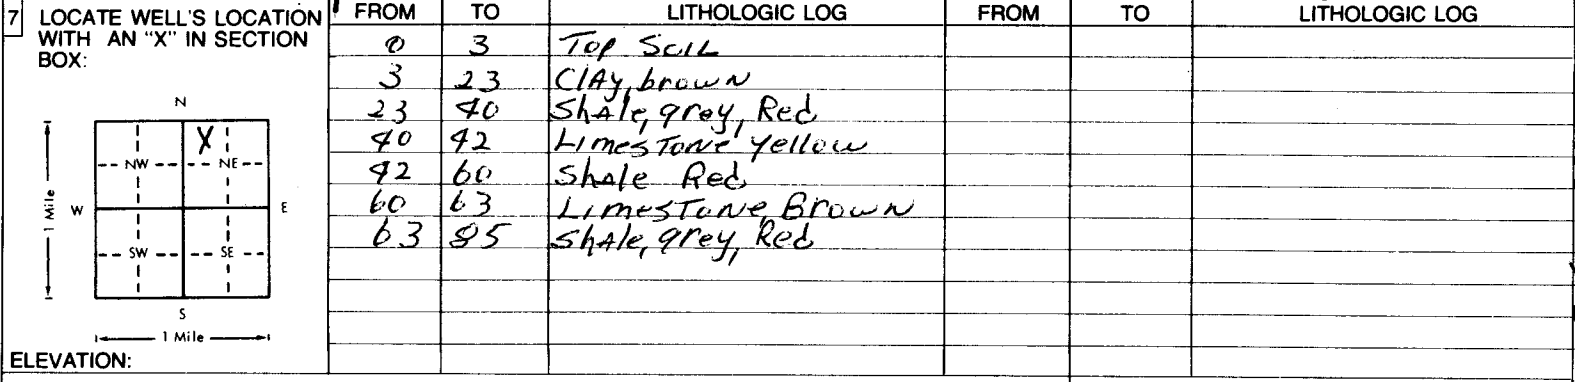 7 LOCATE WELL'S LOCATION WITH AN "X" IN SECTION BOX:
N
X
NW NE
W E
1 Mile
SW SE
S
1 Mile
ELEVATION:
FROM TO LITHOLOGIC LOG FROM TO LITHOLOGIC LOG
0 3 Top Soil
3 23 Clay, brown
23 40 Shale, grey, Red
40 42 Limestone yellow
42 60 Shale Red
60 63 Limestone, Brown
63 85 Shale, grey, Red